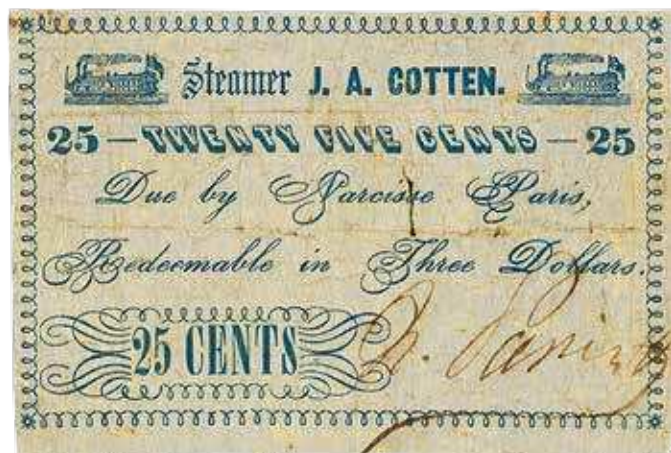 Steamer J. A. COTTEN.
25 — TWENTY FIVE CENTS — 25
Due by Narcisse Paris,
Redeemable in Three Dollars.
25 CENTS
N. Paris